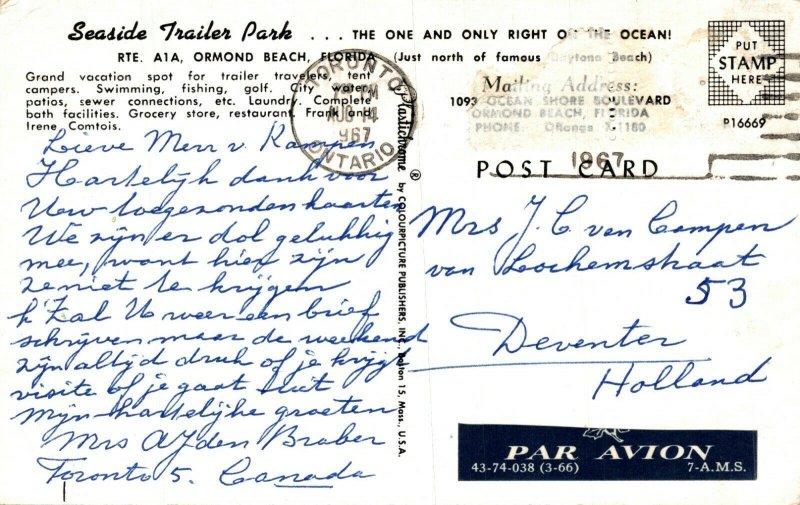 Seaside Trailer Park ... THE ONE AND ONLY RIGHT ON THE OCEAN!
RTE. A1A, ORMOND BEACH, FLORIDA (Just north of famous Daytona Beach)
Grand vacation spot for trailer travelers, tent
campers. Swimming, fishing, golf. City water,
patios, sewer connections, etc. Laundry. Complete
bath facilities. Grocery store, restaurant. Frank and
Irene Comtois.
Mailing Address:
1093 OCEAN SHORE BOULEVARD
ORMOND BEACH, FLORIDA
PHONE:
PUT
STAMP
HERE
P16669
TORONTO
AUG
1967
ONTARIO
1967
POST CARD
Plastichrome ® by COLOURPICTURE PUBLISHERS, INC., Boston 15, Mass., U.S.A.
Lieve Merr v. Kampen
Hartelijk dank voor
Uw toegezonden kaarten
We zijn er dol gelukkig
mee, want hier zijn
ze niet te krijgen
k Zal U weer een brief
schrijven maar de weekend
zijn altijd druk of je krijgt
visite of je gaat uit
Mijn hartelijke groeten
Mrs A J den Braber
Toronto 5. Canada
Mrs J. C. van Campen
van Lochemstraat
53
Deventer
Holland
PAR AVION
43-74-038 (3-66) 7-A.M.S.